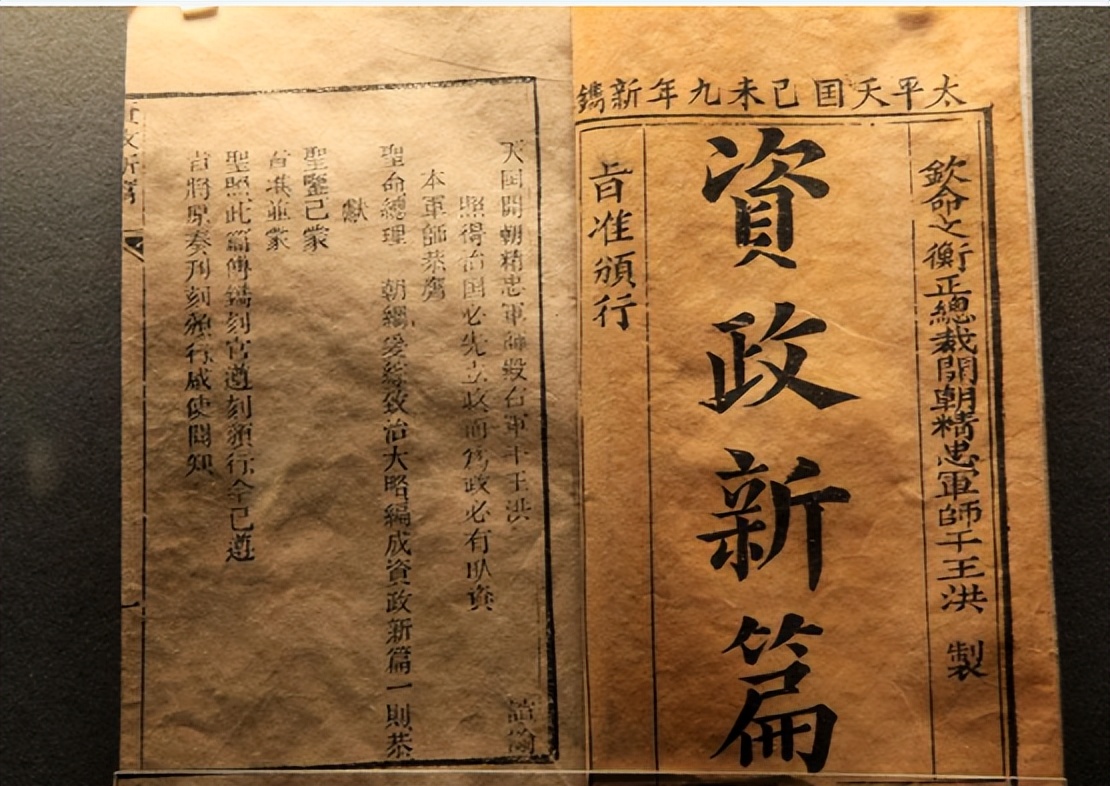 太平天囯己未九年新鐫
欽命文衡正總裁開朝精忠軍師干王洪 製
資政新篇
旨准頒行
天囯開朝精忠軍師殿右軍干王洪 誥諭
照得治囯必先立政而為政必有取資
本軍師恭膺
聖命總理 朝綱爰綜致治大略編成資政新篇一則恭
獻
聖鑒已蒙
旨准並蒙
聖照此篇傳鐫刻官遵刻頒行今已遵
旨將原奏刊刻頒行咸使聞知
資政新篇
一